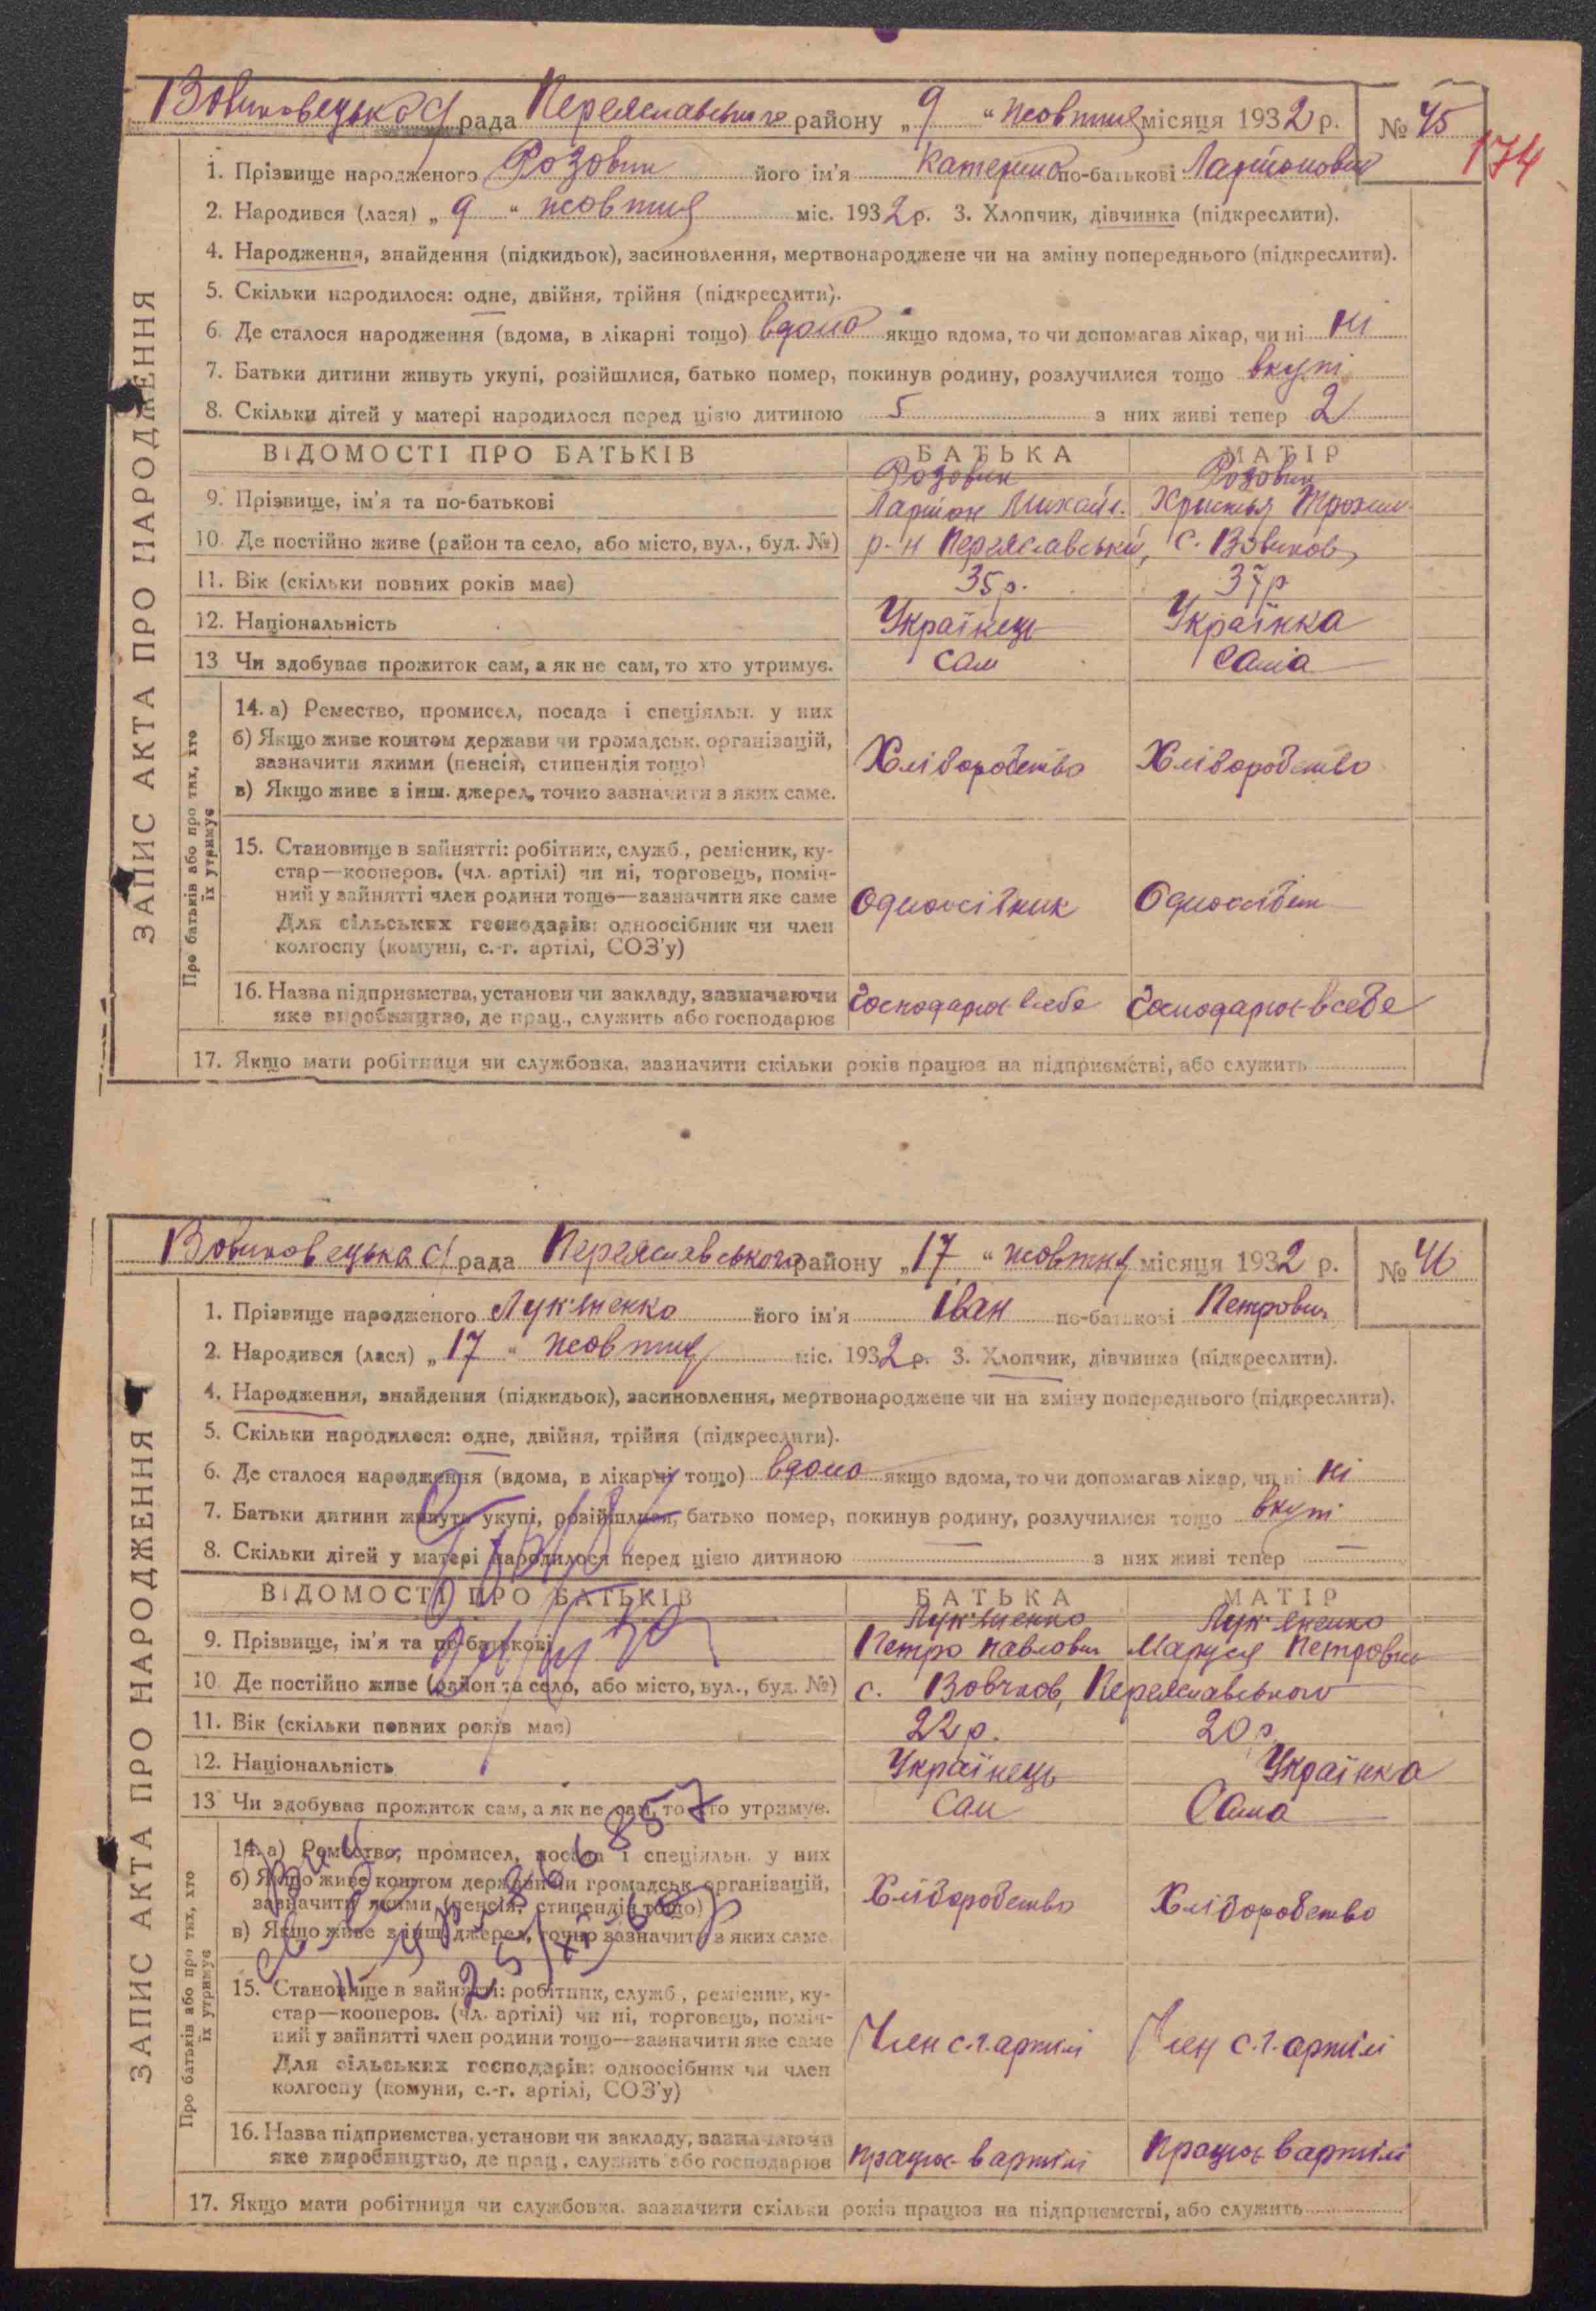 Вовчковецька с/рада Переяславського району „9" жовтня місяця 1932 р. № 45
174
1. Прізвище народженого Розовик його ім'я Катерина по-батькові Ларионовна
2. Народився (лася) „9" жовтня міс. 1932 р. 3. Хлопчик, дівчинка (підкреслити).
4. Народження, знайдення (підкидьок), засиновлення, мертвонароджене чи на зміну попереднього (підкреслити).
5. Скільки народилося: одне, двійня, трійня (підкреслити).
6. Де сталося народження (вдома, в лікарні тощо) вдома якщо вдома, то чи допомагав лікар, чи ні ні
7. Батьки дитини живуть укупі, розійшлися, батько помер, покинув родину, розлучилися тощо вкупі
8. Скільки дітей у матері народилося перед цією дитиною 5 з них живі тепер 2
ВІДОМОСТІ ПРО БАТЬКІВ БАТЬКА МАТІР
Розовик Розовик
9. Прізвище, ім'я та по-батькові Ларион Михайл. Христья Трохим.
10. Де постійно живе (район та село, або місто, вул., буд. №) р-н Переяславський, с. Вовчков
11. Вік (скільки повних років має) 35 р. 37 р
12. Національність Українець Українка
13 Чи здобуває прожиток сам, а як не сам, то хто утримує. Сам Сама
Про батьків або про тих, хто їх утримує
14. а) Ремество, промисел, посада і спеціяльн. у них
б) Якщо живе коштом держави чи громадськ. організацій,
зазначити якими (пенсія, стипендія тощо) Хліборобство Хліборобство
в) Якщо живе з інш. джерел, точно зазначити з яких саме.
15. Становище в зайнятті: робітник, служб., ремісник, ку-
стар—кооперов. (чл. артілі) чи ні, торговець, поміч-
ний у зайнятті член родини тощо—зазначити яке саме Одноосібник Одноосібн
Для сільських господарів: одноосібник чи член
колгоспу (комуни, с.-г. артілі, СОЗ'у)
16. Назва підприємства, установи чи закладу, зазначаючи Господарює в себе Господарює в себе
яке виробництво, де прац., служить або господарює
17. Якщо мати робітниця чи службовка, зазначити скільки років працює на підприємстві, або служить
ЗАПИС АКТА ПРО НАРОДЖЕННЯ
Вовчковецька с/рада Переяславського району „17" жовтня місяця 1932 р. № 46
1. Прізвище народженого Лук'яненко його ім'я Іван по-батькові Петрович
2. Народився (лася) „17" жовтня міс. 1932 р. 3. Хлопчик, дівчинка (підкреслити).
4. Народження, знайдення (підкидьок), засиновлення, мертвонароджене чи на зміну попереднього (підкреслити).
5. Скільки народилося: одне, двійня, трійня (підкреслити).
6. Де сталося народження (вдома, в лікарні тощо) вдома якщо вдома, то чи допомагав лікар, чи ні ні
7. Батьки дитини живуть укупі, розійшлися, батько помер, покинув родину, розлучилися тощо вкупі
8. Скільки дітей у матері народилося перед цією дитиною — з них живі тепер —
ВІДОМОСТІ ПРО БАТЬКІВ БАТЬКА МАТІР
Лук'яненко Лук'яненко
9. Прізвище, ім'я та по-батькові Петро Павлович Маруся Петровн
10. Де постійно живе (район та село, або місто, вул., буд. №) с. Вовчков, Переяславського
11. Вік (скільки повних років має) 22 р. 20 р
12. Національність Українець Українка
13 Чи здобуває прожиток сам, а як не сам, то хто утримує. Сам Сама
Про батьків або про тих, хто їх утримує
14. а) Ремество, промисел, посада і спеціяльн. у них
б) Якщо живе коштом держави чи громадськ. організацій,
зазначити якими (пенсія, стипендія тощо) Хліборобство Хліборобство
в) Якщо живе з інш. джерел, точно зазначити з яких саме.
15. Становище в зайнятті: робітник, служб., ремісник, ку-
стар—кооперов. (чл. артілі) чи ні, торговець, поміч-
ний у зайнятті член родини тощо—зазначити яке саме Член с.г. артілі Член с.г. артілі
Для сільських господарів: одноосібник чи член
колгоспу (комуни, с.-г. артілі, СОЗ'у)
16. Назва підприємства, установи чи закладу, зазначаючи
яке виробництво, де прац., служить або господарює працює в артілі працює в артілі
17. Якщо мати робітниця чи службовка, зазначити скільки років працює на підприємстві, або служить
ЗАПИС АКТА ПРО НАРОДЖЕННЯ